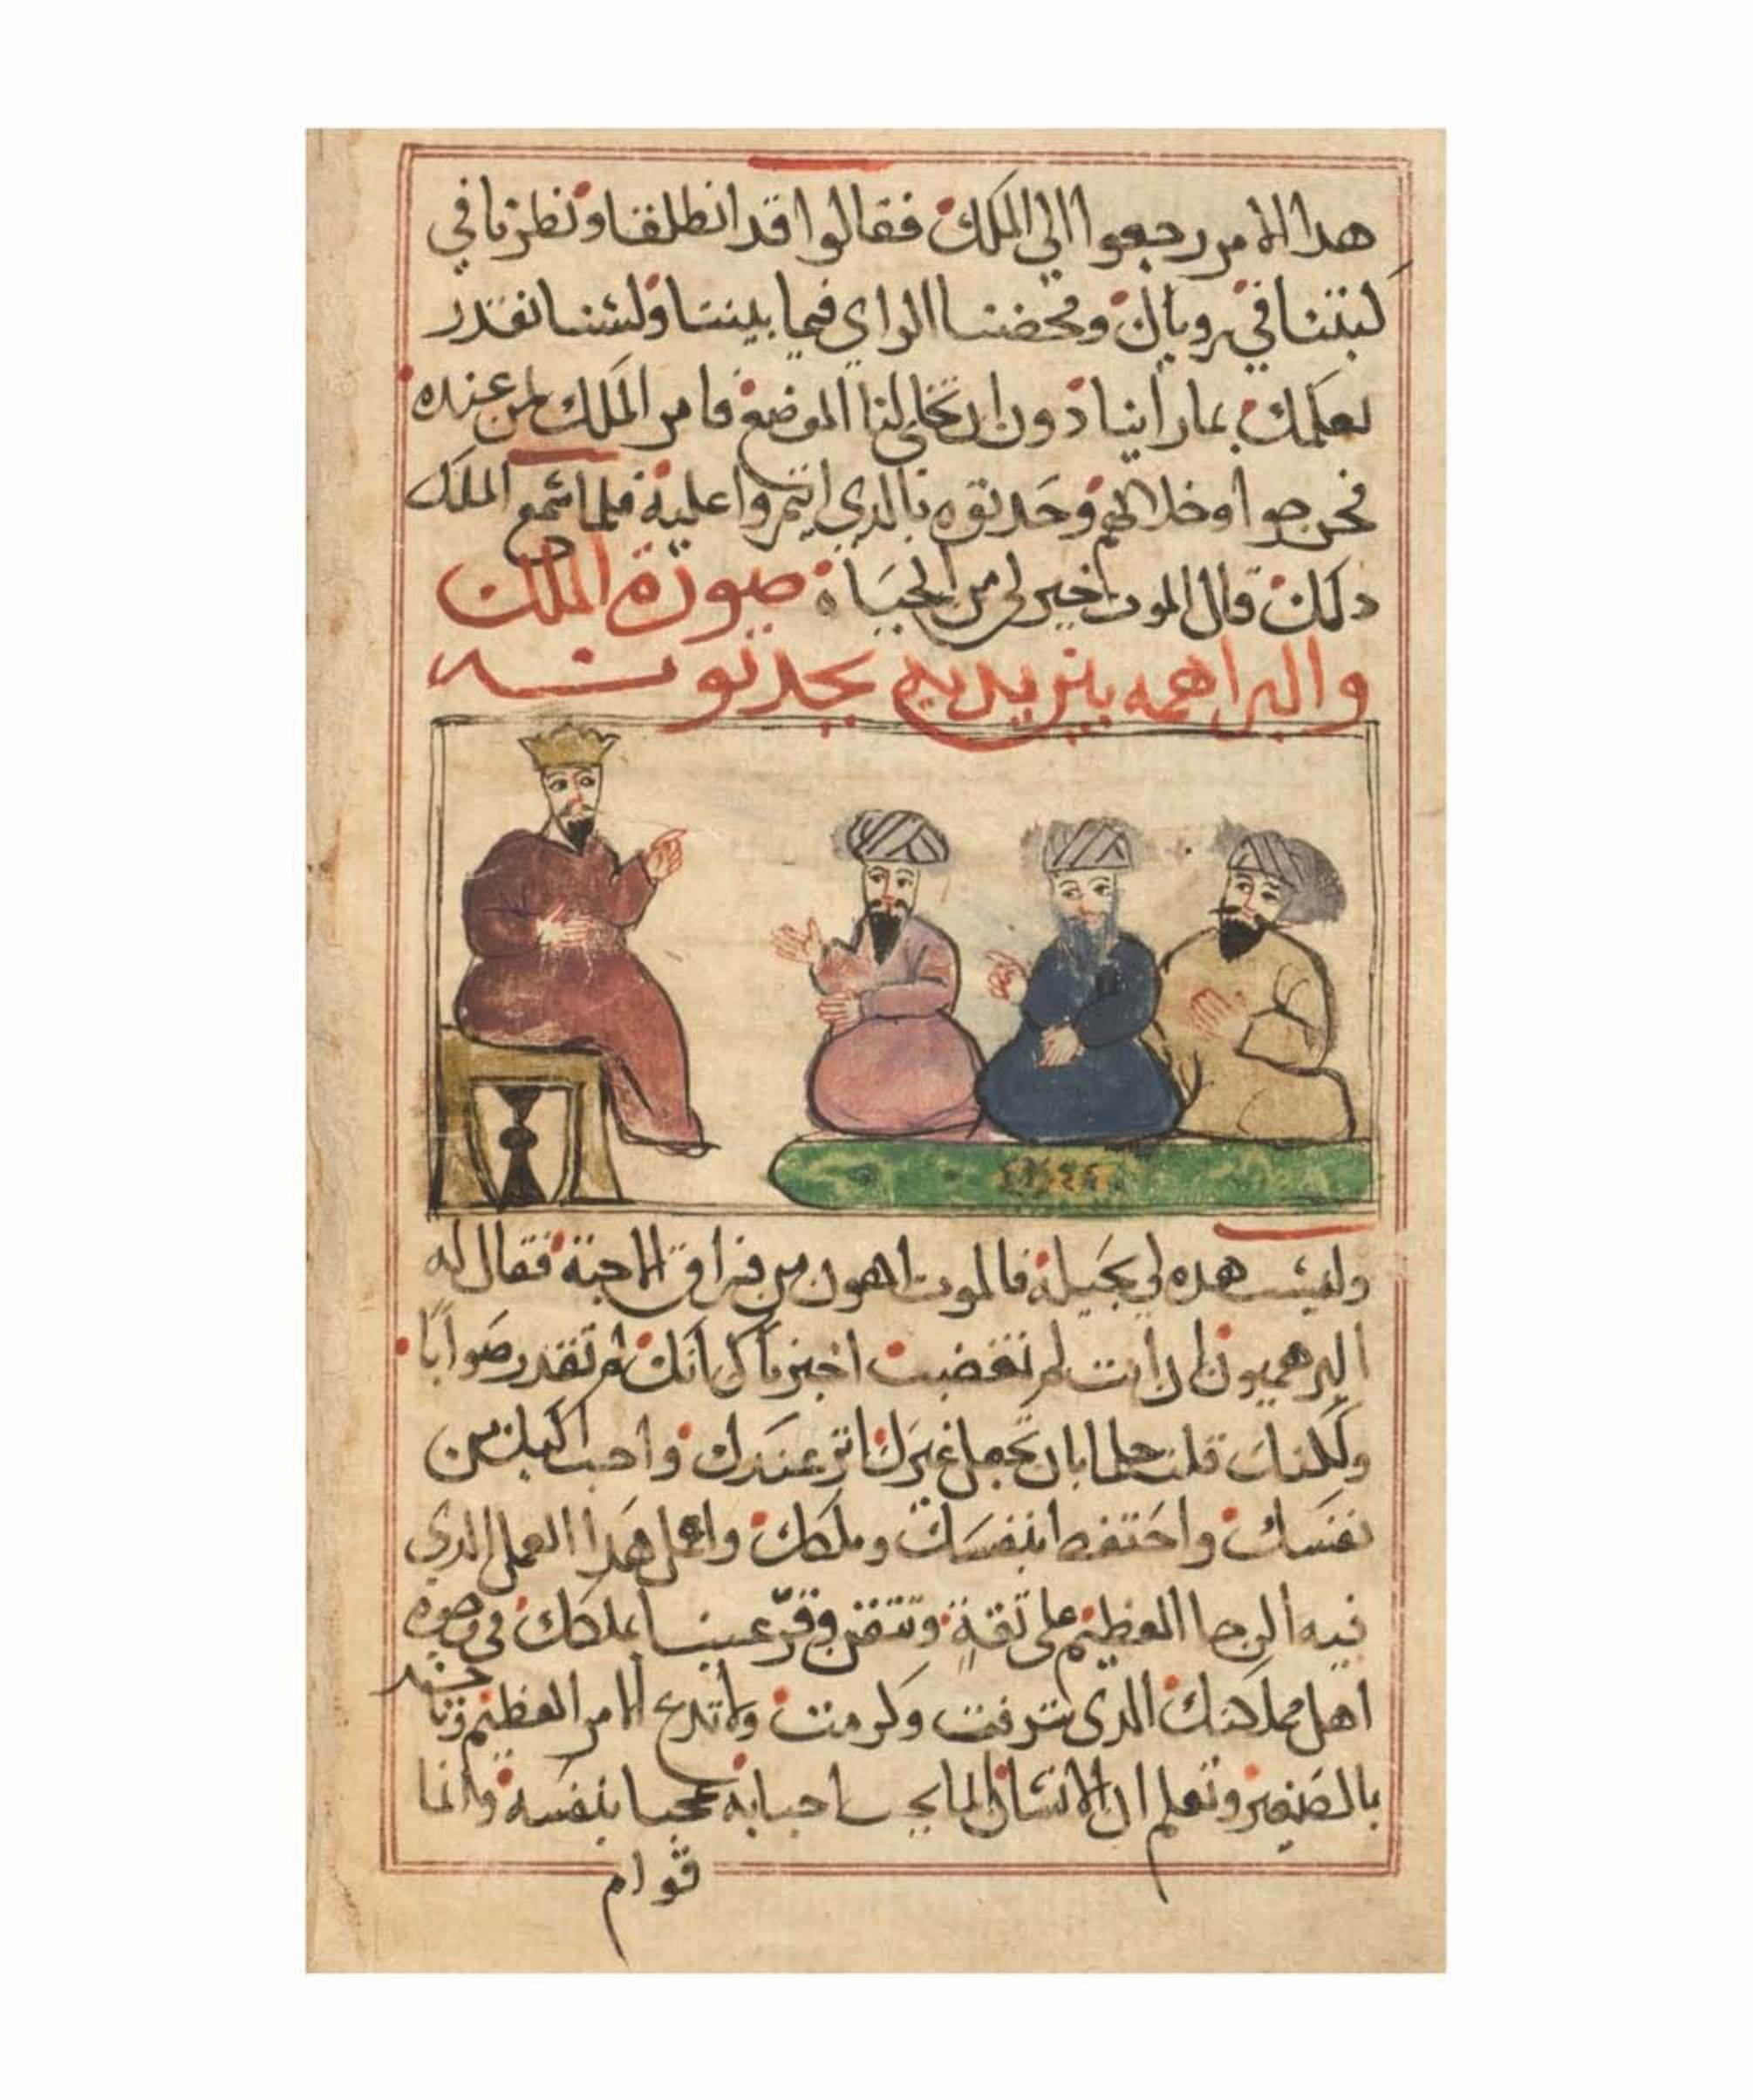 هدا الامر رجعوا الي الملك فقالوا قد انطلقنا ونظرنا في
كتبنا في روياك ومحضنا الراي فيما بيننا ولسنا نقدر
نعلمك بما راينا دون ان تخلي لنا الموضع فامر الملك لمن عنده
فخرجوا وخلا لهم وحدثوه بالدي ايتمروا عليه فلما سمع الملك
دلك قال الموت خير لي من الحياة صورة الملك
والبراهمه بين يديه يحدثونه
وليست هده لي بحيلة فالموت اهون من فراق الاحبة فقال له
البرهميون ان انت لم تغضب اخبرناك انك لم تقدر صوابا
ولكنك قلت خطا بان تجعل غيرك اثر عندك واحب اليك من
نفسك واحتفظ بنفسك وملكك واعمل هدا العمل الدي
فيه الرجا العظيم على ثقة وتيقن وقر عينا بملكك في وجوه
اهل مملكتك الدي شرفت وكرمت ولا تدع الامر العظيم وتاخد
بالصغير وتعلم ان الانسان انما يحب احبابه محبا بنفسه وانما
قوام